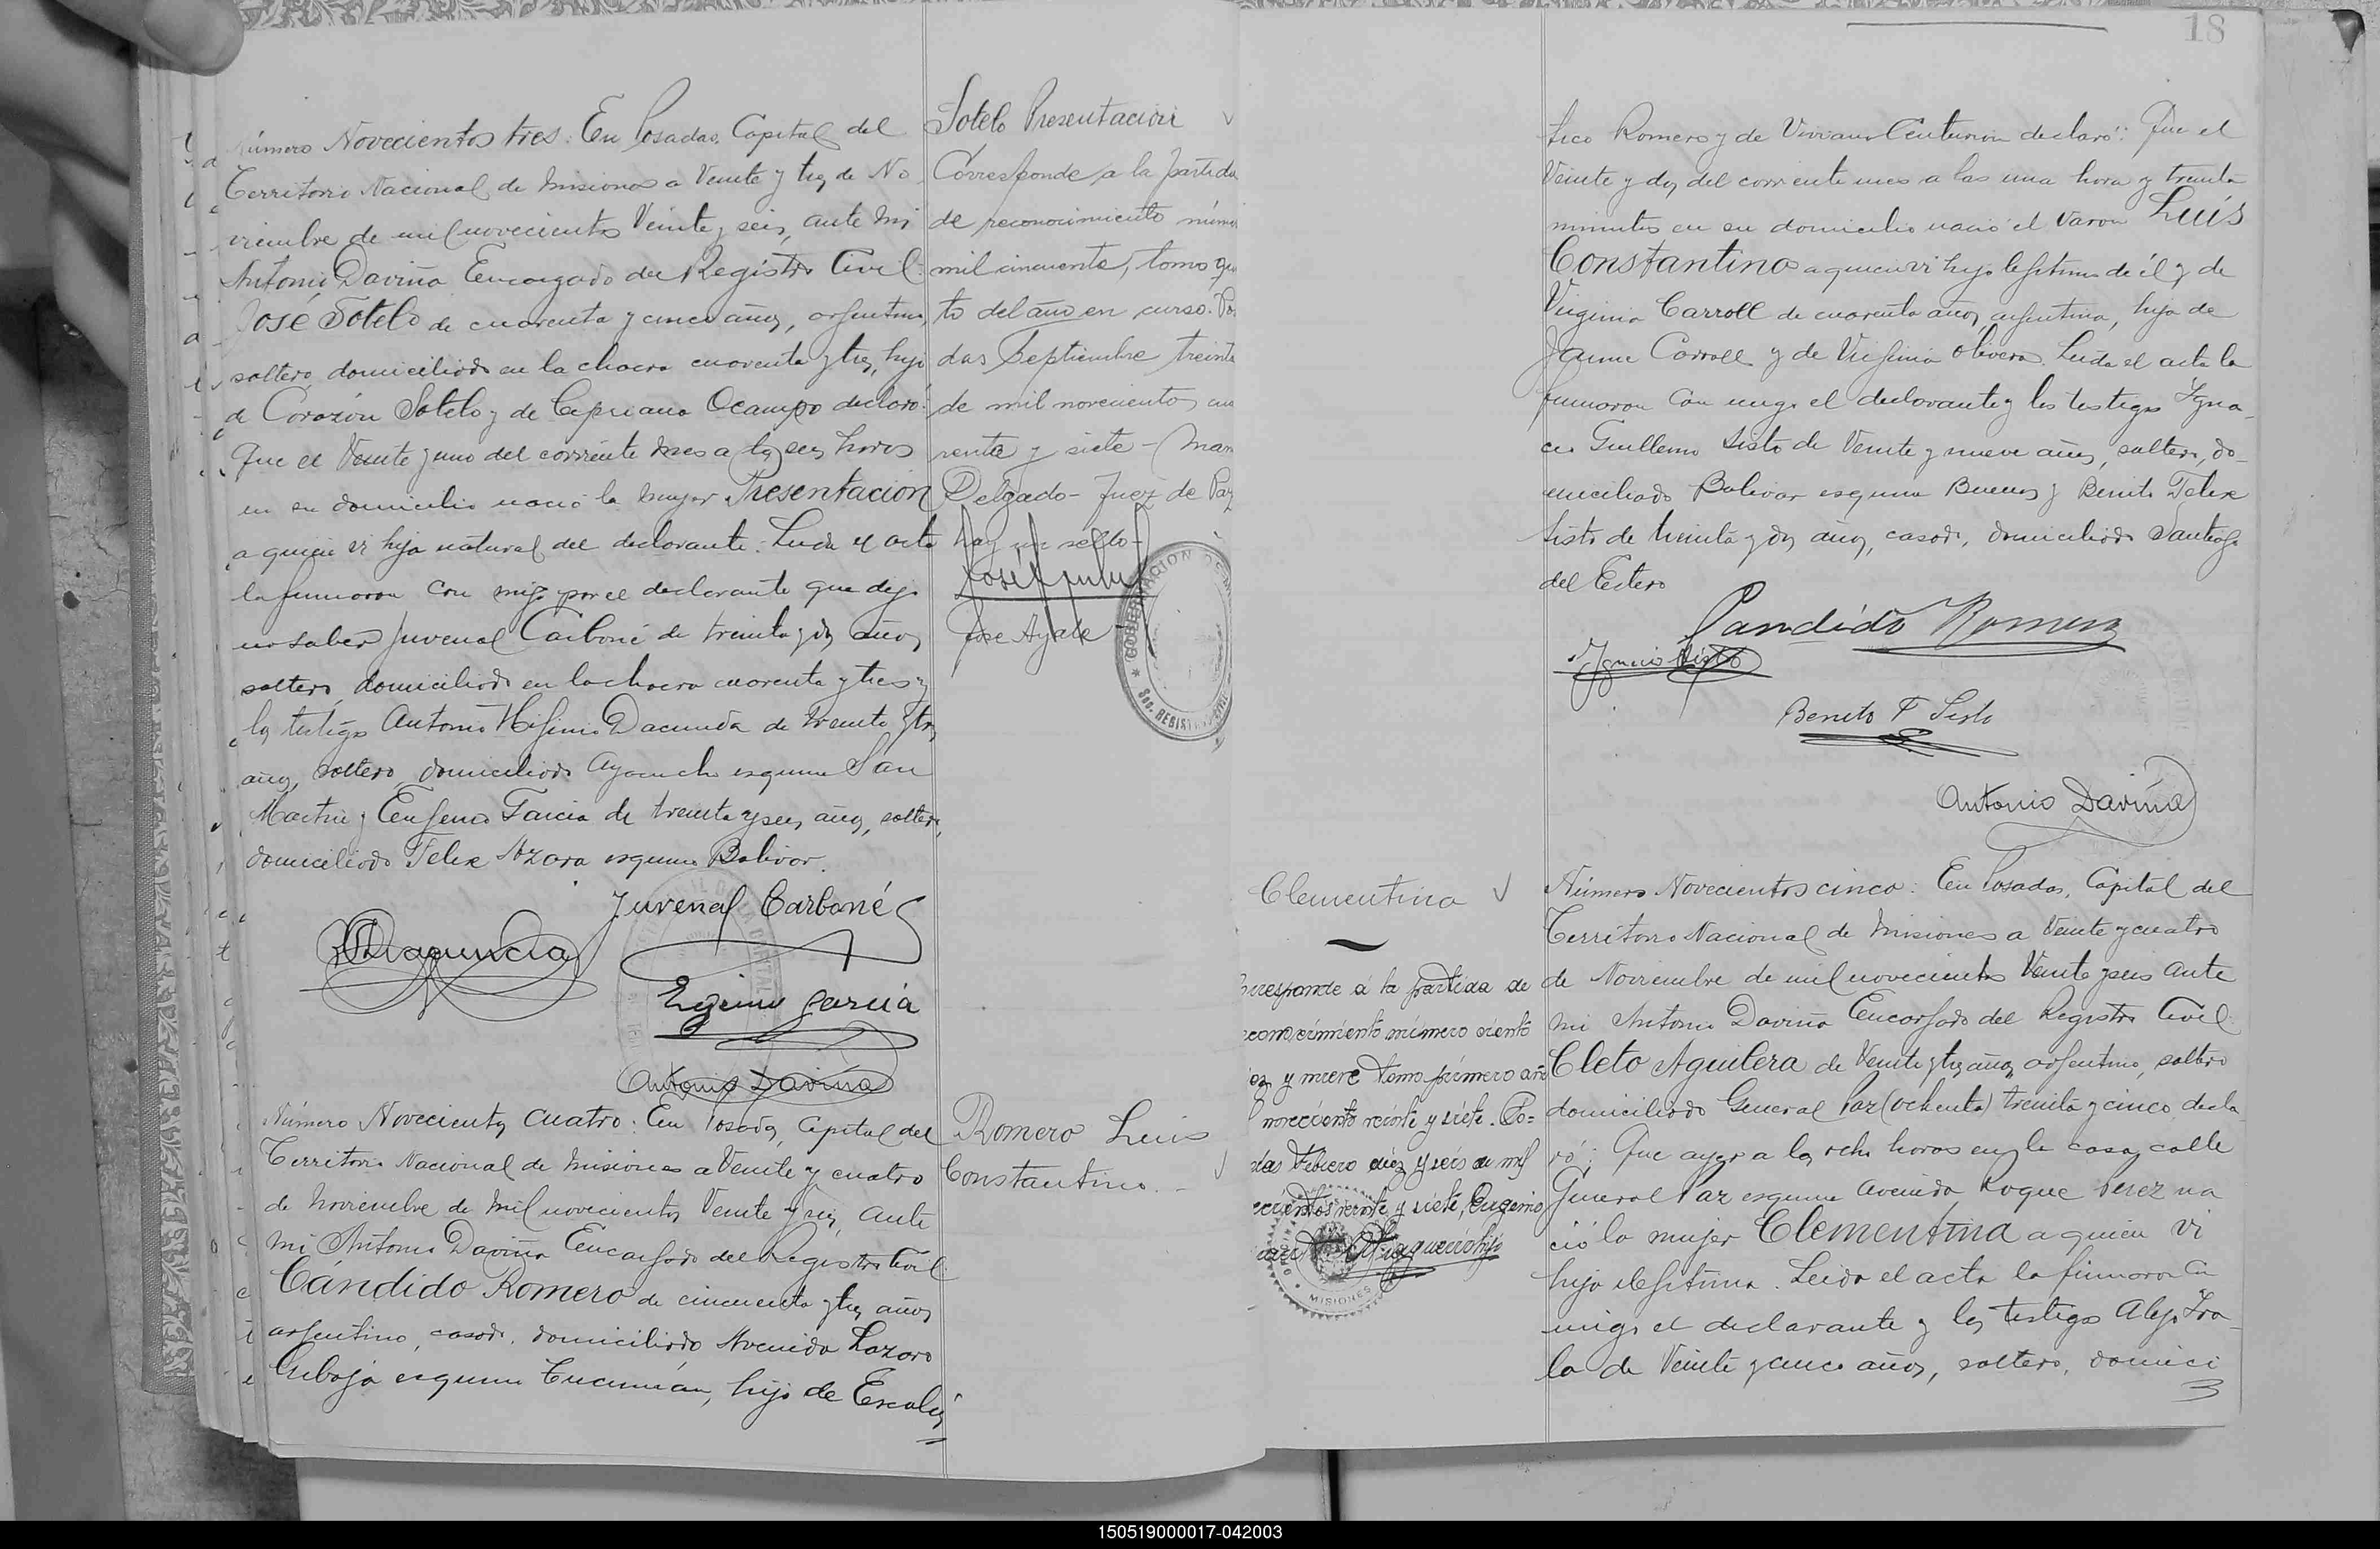 18
Número Novecientos tres: En Posadas, Capital del
Territorio Nacional de Misiones a Veinte y tres de No
viembre de mil novecientos Veinte y seis, ante mi
Antonio Daviña Encargado del Registro Civil:
José Sotelo de cuarenta y cinco años, argentino,
soltero, domiciliado en la chacra cuarenta y tres, hijo
de Corazón Sotelo y de Cipriana Ocampo declaró:
Que el Veinte y uno del corriente mes a las seis horas
en su domicilio nació la mujer Presentación
a quien vi hija natural del declarante. Leida el acta
la firmaron con migo por el declarante que dijo
no saber Juvenal Carboné de treinta y dos años,
soltero, domiciliado en la chacra cuarenta y tres y
los testigos Antonio Higinio Dacunda de treinta y tres
años, soltero, domiciliado Ayacucho esquina San
Martin y Eugenio Garcia de treinta y seis años, soltero,
domiciliado Felix Azara esquina Bolivar.
Juvenal Carboné
Dacunda
Eginio Garcia
Antonio Daviña
Sotelo Presentación
Corresponde a la partida
de reconocimiento núme
mil cincuenta, tomo qu
to del año en curso. Po
das Septiembre treinta
de mil novecientos cua
renta y siete - Man
Delgado - Juez de Paz
hay un sello -
José Ayala
Número Novecientos Cuatro: En Posadas, Capital del
Territorio Nacional de Misiones a Veinte y cuatro
de Noviembre de Mil novecientos Veinte y seis, ante
mi Antonio Daviña Encargado del Registro Civil:
Cándido Romero de cincuenta y tres años,
argentino, casado, domiciliado Avenida Lazaro
Gibaja esquina Tucumán, hijo de Escolás
Romero Luis
Constantino. -
tico Romero y de Viviana Centurion declaró: Que el
Veinte y dos del corriente mes a las una hora y treinta
minutos en su domicilio nació el varon Luís
Constantino a quien vi hijo legitimo de él y de
Virginia Carroll de cuarenta años, argentina, hija de
Jaime Carroll y de Virginia Olivera. Leida el acta la
firmaron con migo el declarante y los testigos Igna-
cio Guillermo Sisto de Veinte y nueve años, soltero, do-
miciliado Bolivar esquina Buenos y Benito Felix
Sisto de treinta y dos años, casado, domiciliado Santiago
del Estero
Candido Romero
Ignacio Sisto
Benito F Sisto
Antonio Daviña
Clementina
rresponde á la partida de
econocimiento número ciento
iez y nueve tomo primero año
novecientos veinte y siete. Po=
das Febrero diez y seis de mil
ecientos veinte y siete, Eugenio
MISIONES
Número Novecientos cinco: En Posadas, Capital del
Territorio Nacional de Misiones a Veinte y cuatro
de Noviembre de mil novecientos Veinte y seis ante
mi Antonio Daviña Encargado del Registro Civil:
Cleto Aguilera de Veinte y tres años, argentino, soltero
domiciliado General Paz (ochenta) treinta y cinco decla
ró: Que ayer a las ocho horas en la casa, calle
General Paz esquina Avenida Roque Perez na
ció la mujer Clementina a quien vi
hija ilegitima. Leida el acta la firmaron con
migo el declarante y los testigos Alejo Fra
la de Veinte y cinco años, soltero, domici
150519000017-042003